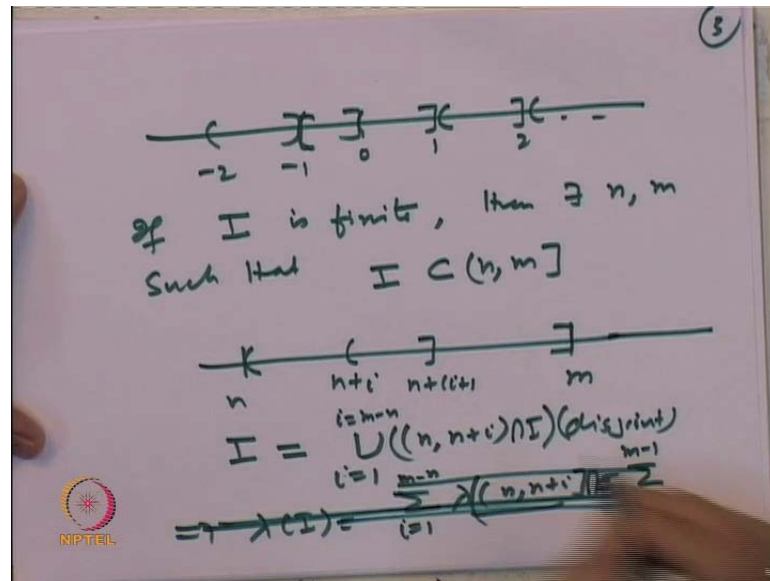 3
( ][ ] ]( ]( . -
-2 -1 0 1 2
If I is finite, then ∃ n, m
Such that I ⊂ (n, m]
n n+i n+(i+1 m
i=m-n
I = ∪((n, n+i)∩I)(disjoint)
i=1
m-n m-1
=> λ(I) = Σ λ((n, n+i] = Σ
i=1
NPTEL